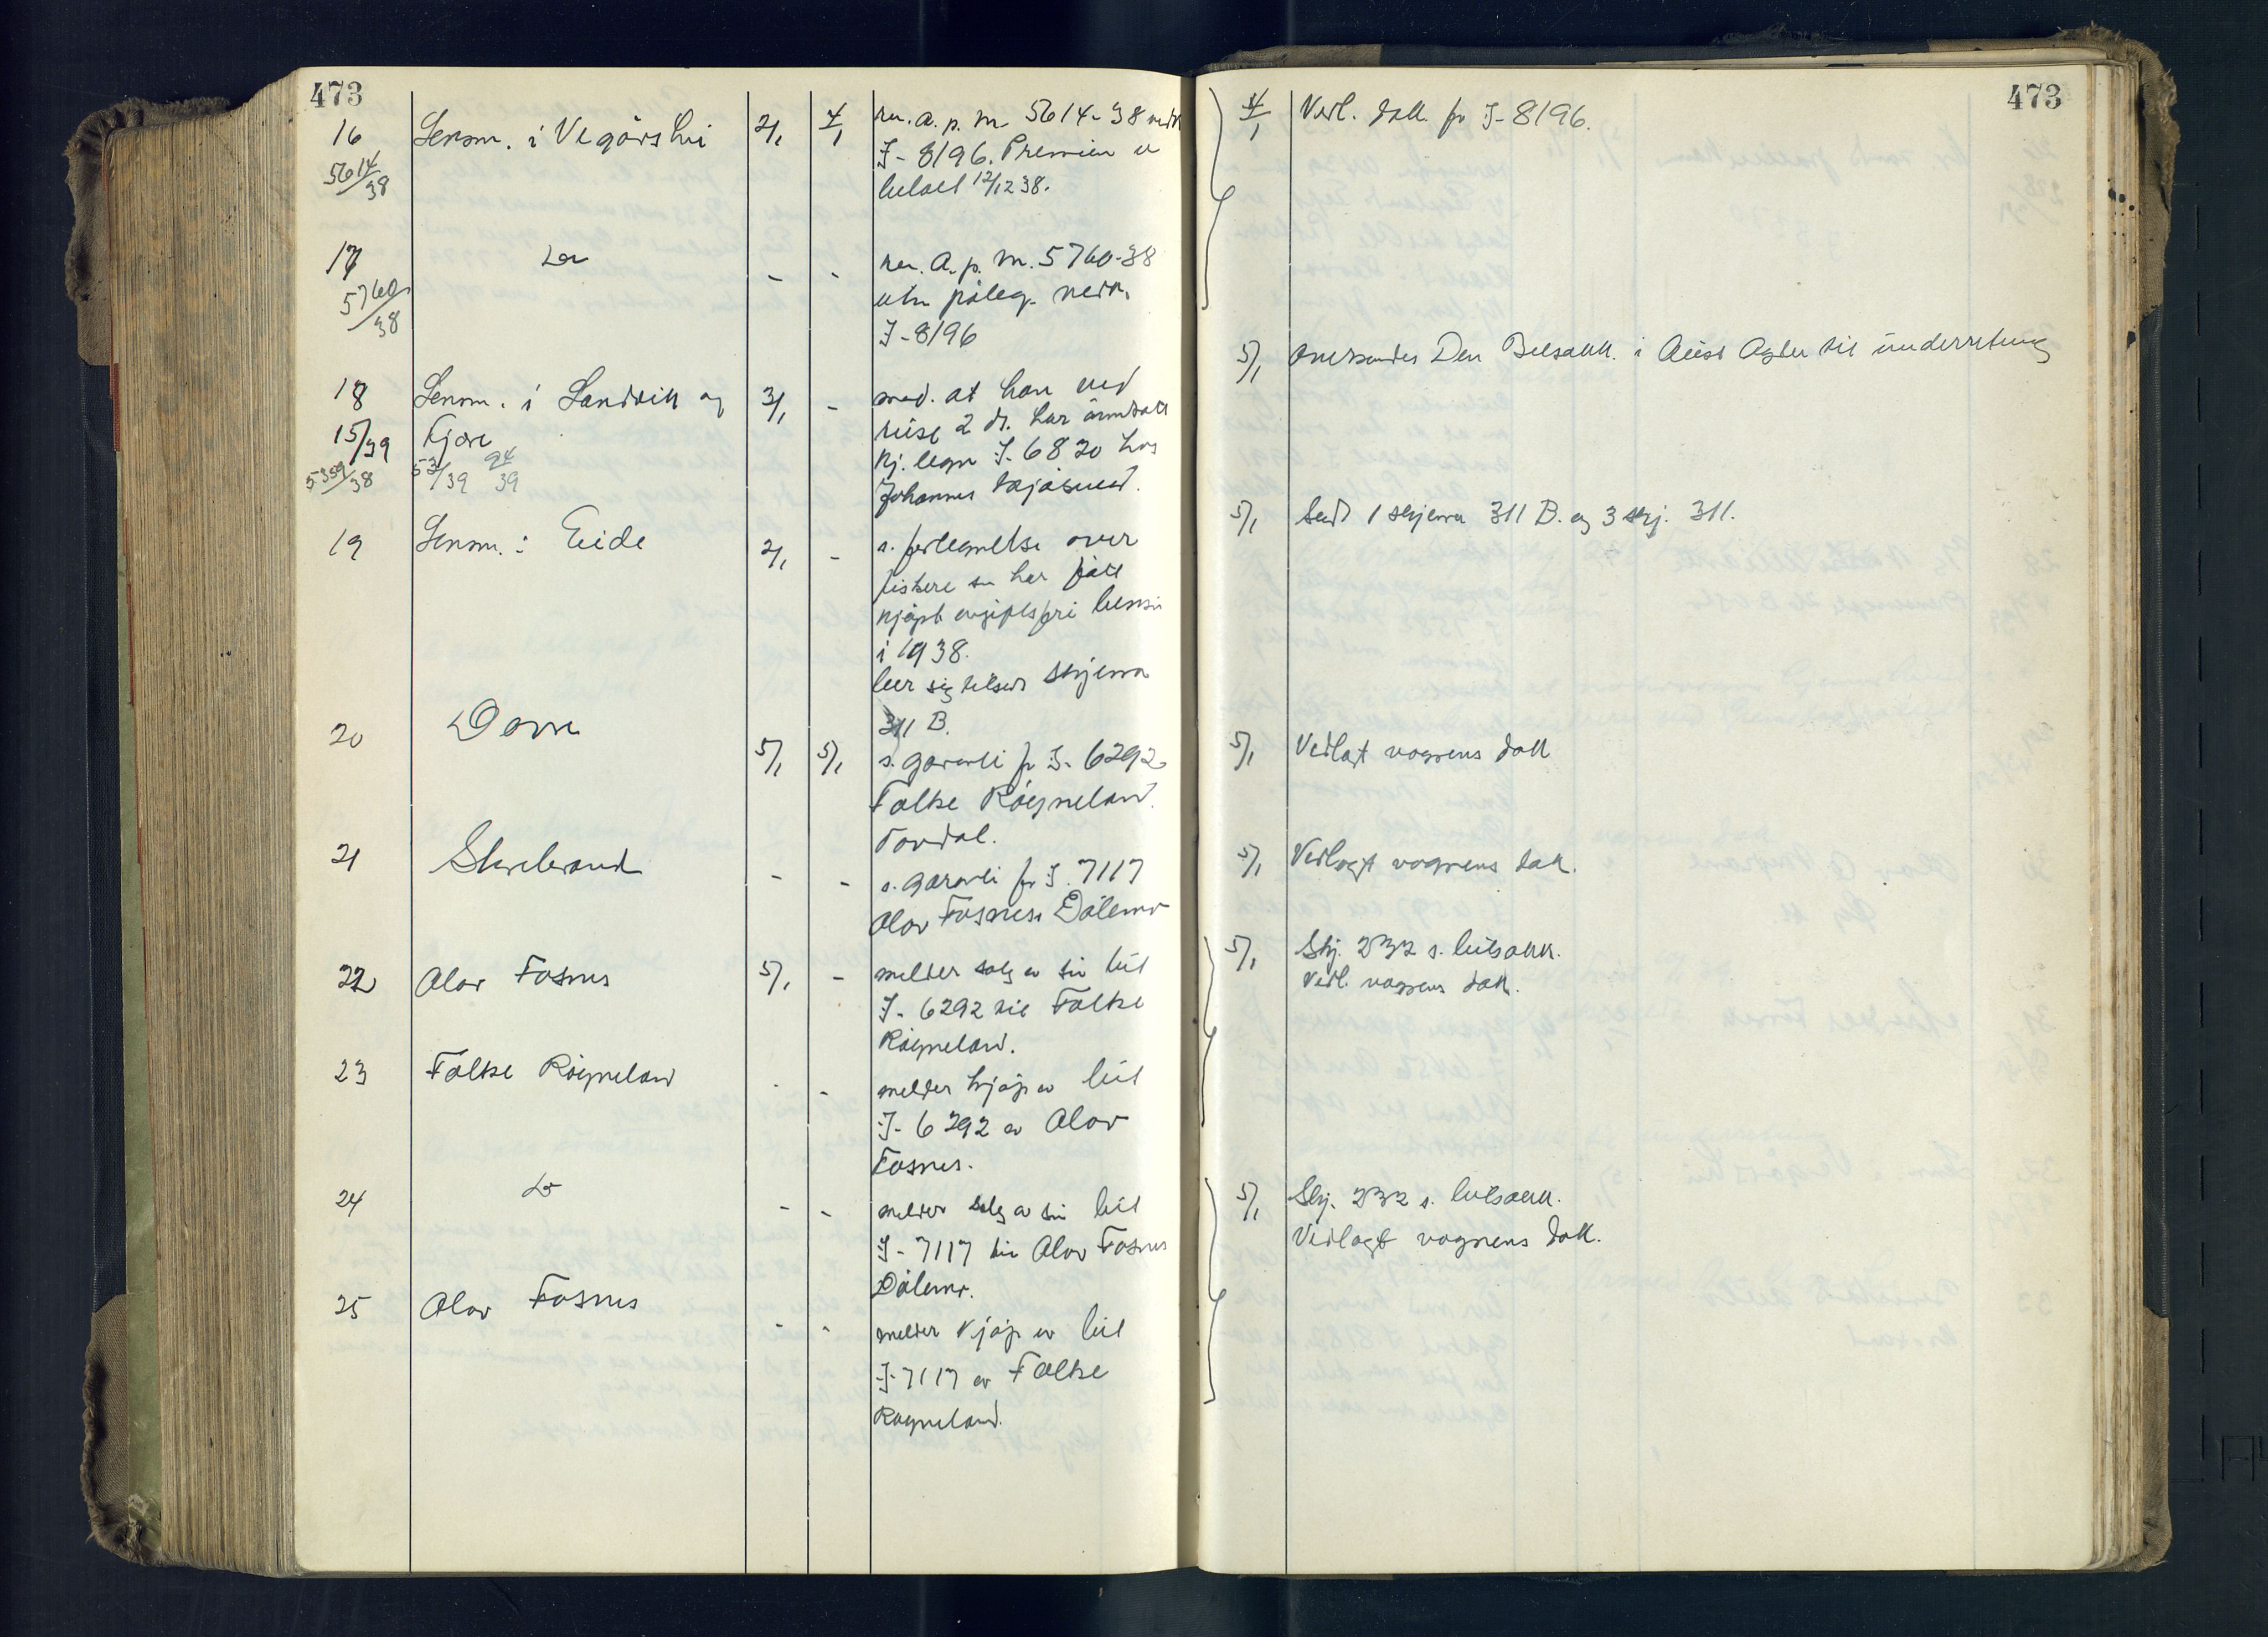 473
16 Lensm. i Vegårshei 2/1 4/1 her. a. p. m. 5614-38 vedr.
5614/38 I-8196. Premien er
betalt 12/12 38.
17 Do - - her. a. p. m. 5760-38
5760/38 påleg. vedr.
I-8196
18 Lensm. i Landvik og 3/1 - med. at han ved
15/39 Fjære reise 2 ds. har
5359/38 52/39 94/39 kj. tegn I-6820 hos
Johannes
19 Lensm. i Eide 2/1 - s. fortegnelse over
fiskere som har fått
kjøpt avgiftsfri bensin
i 1938.
ber sig tilsendt skjema
311 B.
20 Dovre 5/1 5/1 s. garanti for I-6292
Falke Røigneland
Tovdal.
21 Skrebrand - - s. garanti for I-7117
Olav Fosnes Dålemo
22 Olav Fosnes 5/1 - melder salg av sin bil
I-6292 til Falke
Røigneland.
23 Falke Røigneland - - melder kjøp av bil
I-6292 av Olav
Fosnes.
24 Do - - melder salg av sin bil
I-7117 til Olav Fosnes
Dålemo.
25 Olav Fosnes - - melder kjøp av bil
I-7117 av Falke
Røigneland.
473
4/1 Vedl. dokk. for I-8196.
5/1 Oversendes Den Bilsakk. i Aust Agder til underretning
5/1 Sendt 1 skjema 311 B. og 3 skj. 311.
5/1 Vedlagt vognens dokk
5/1 Vedlagt vognens dokk.
5/1 Skj. 232 s. bilsakk.
Vedl. vognens dokk.
5/1 Skj. 232 s. bilsakk.
Vedlagt vognens dokk.